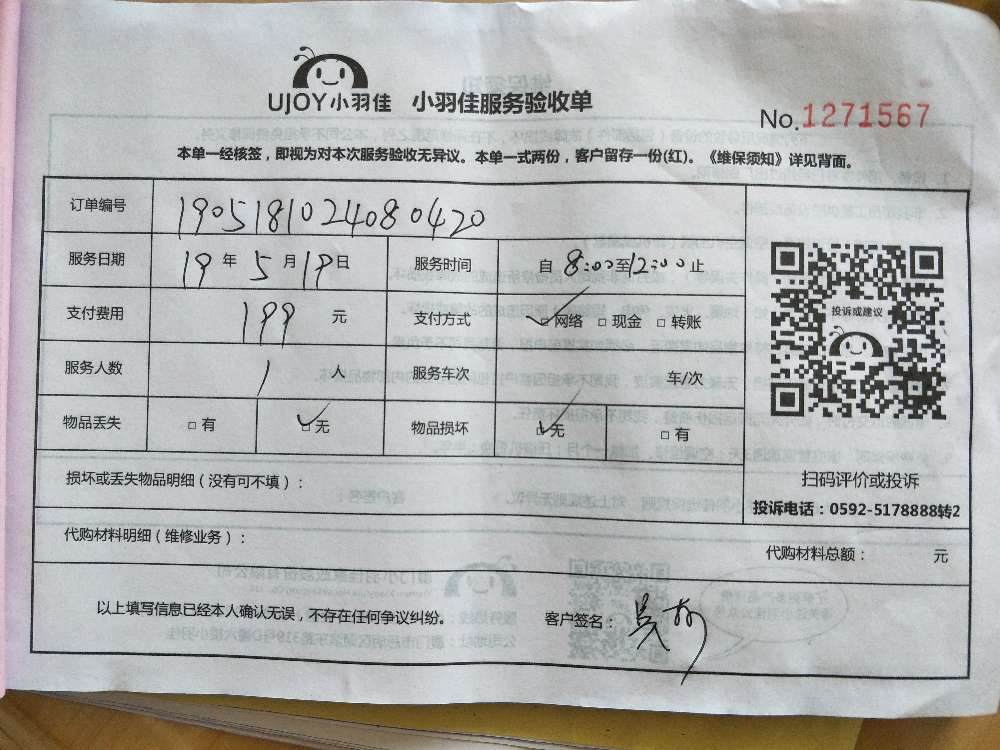 UJOY小羽佳 小羽佳服务验收单
No.1271567
本单一经核签，即视为对本次服务验收无异议。本单一式两份，客户留存一份(红)。《维保须知》详见背面。
订单编号 1905181024080420
服务日期 19年5月19日 服务时间 自8:00至12:00止
支付费用 199元 支付方式 ☑网络 □现金 □转账
投诉或建议
服务人数 1人 服务车次 车/次
物品丢失 □有 ☑无 物品损坏 ☑无 □有
损坏或丢失物品明细（没有可不填）：
扫码评价或投诉
投诉电话：0592-5178888转2
代购材料明细（维修业务）： 代购材料总额： 元
以上填写信息已经本人确认无误，不存在任何争议纠纷。 客户签名：吴